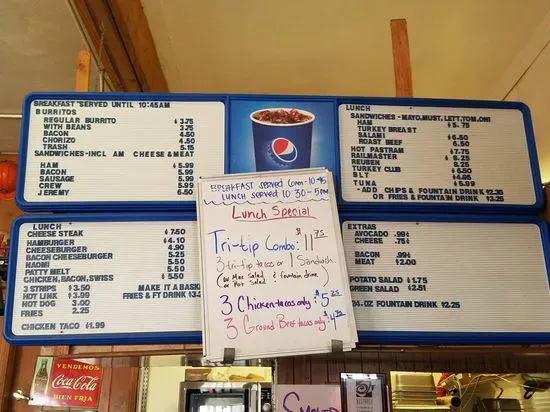 BREAKFAST "SERVED UNTIL 10:45AM
BURRITOS
REGULAR BURRITO $ 3.75
WITH BEANS 3.75
BACON 4.50
CHORIZO 4.50
TRASH 5.15
SANDWICHES-INCL AM CHEESE & MEAT
HAM $ 5.99
BACON 5.99
SAUSAGE 5.99
CREW 5.99
JEREMY 6.50
LUNCH
CHEESE STEAK $ 7.50
HAMBURGER $ 4.10
CHEESEBURGER 4.90
BACON CHEESEBURGER 5.25
NAOMI 5.50
PATTY MELT 5.50
CHICKEN, BACON, SWISS 5.50
3 STRIPS $ 3.50 MAKE IT A BASK
HOT LINK $ 3.99 FRIES & FT DRINK $ 3.25
HOT DOG 3.00
FRIES 2.25
CHICKEN TACO $1.99
pepsi
BREAKFAST SERVED 6am-10:45
LUNCH SERVED 10:30-5pm
Lunch Special
Tri-tip Combo: $11.75
3 tri-tip tacos or 1 Sandwich
(w/ Mac Salad & fountain drink)
or Pot Salad
3 Chicken tacos only: $5.25
3 Ground Beef tacos only: $4.25
LUNCH
SANDWICHES - MAYO, MUST, LETT, TOM, ONI
HAM $ 5.75
TURKEY BREAST
SALAMI
ROAST BEEF 6.50
HOT PASTRAM $ 7.75
RAILMASTER $ 6.25
REUBEN 6.25
TURKEY CLUB
BLT
TUNA $ 5.99
+ ADD CHIPS & FOUNTAIN DRINK $2.35
OR FRIES & FOUNTAIN DRINK $3.25
EXTRAS
AVOCADO .99¢
CHEESE .75¢
BACON .99¢
MEAT $2.00
POTATO SALAD $1.75
GREEN SALAD $2.51
24-OZ FOUNTAIN DRINK $2.25
VENDEMOS
Coca-Cola
BIEN FRIA